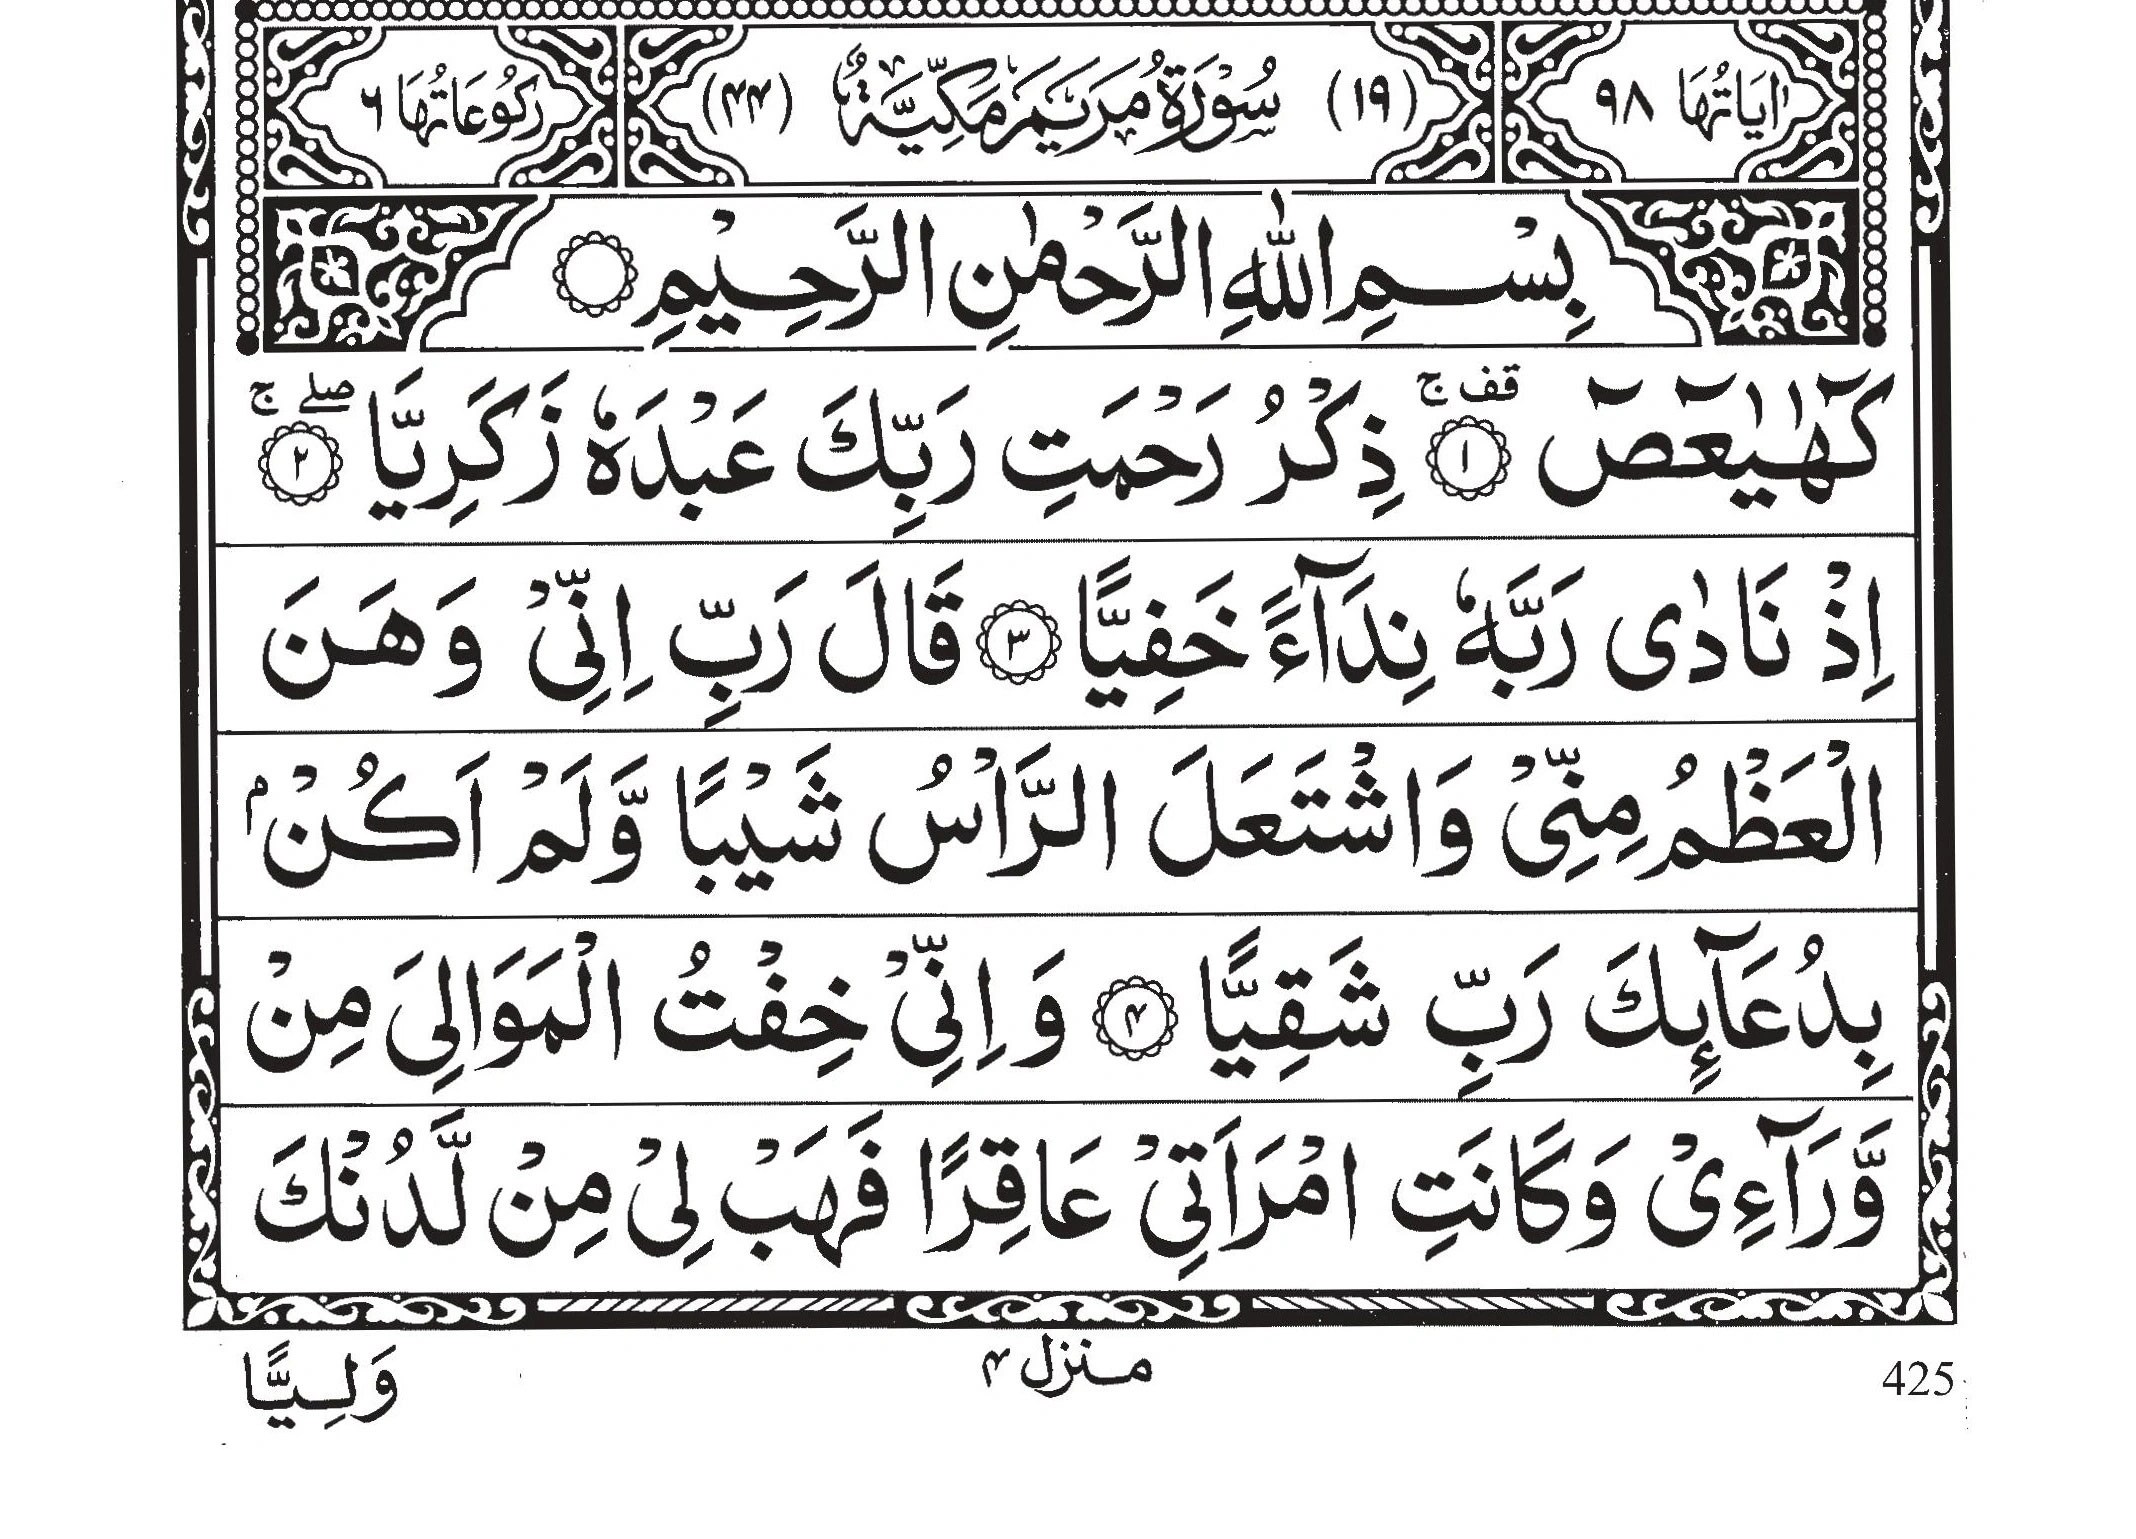 اٰيَاتُهَا ٩٨ (١٩) سُوْرَةُ مَرْيَمَ مَكِّيَّةٌ (٤٤) رُكُوْعَاتُهَا ٦
بِسْمِ اللّٰهِ الرَّحْمٰنِ الرَّحِيْمِ
كٓهٰيٰعٓصٓ ١ قف ج ذِكْرُ رَحْمَتِ رَبِّكَ عَبْدَهٗ زَكَرِيَّا ٢ صلے ج
اِذْ نَادٰى رَبَّهٗ نِدَآءً خَفِيًّا ٣ قَالَ رَبِّ اِنِّىْ وَهَنَ
الْعَظْمُ مِنِّىْ وَاشْتَعَلَ الرَّاْسُ شَيْبًا وَّلَمْ اَكُنْۢ
بِدُعَآىِٕكَ رَبِّ شَقِيًّا ۴ وَ اِنِّىْ خِفْتُ الْمَوَالِىَ مِنْ
وَّرَآءِىْ وَكَانَتِ امْرَاَتِىْ عَاقِرًا فَهَبْ لِىْ مِنْ لَّدُنْكَ
وَلِيًّا منزل ۴ 425